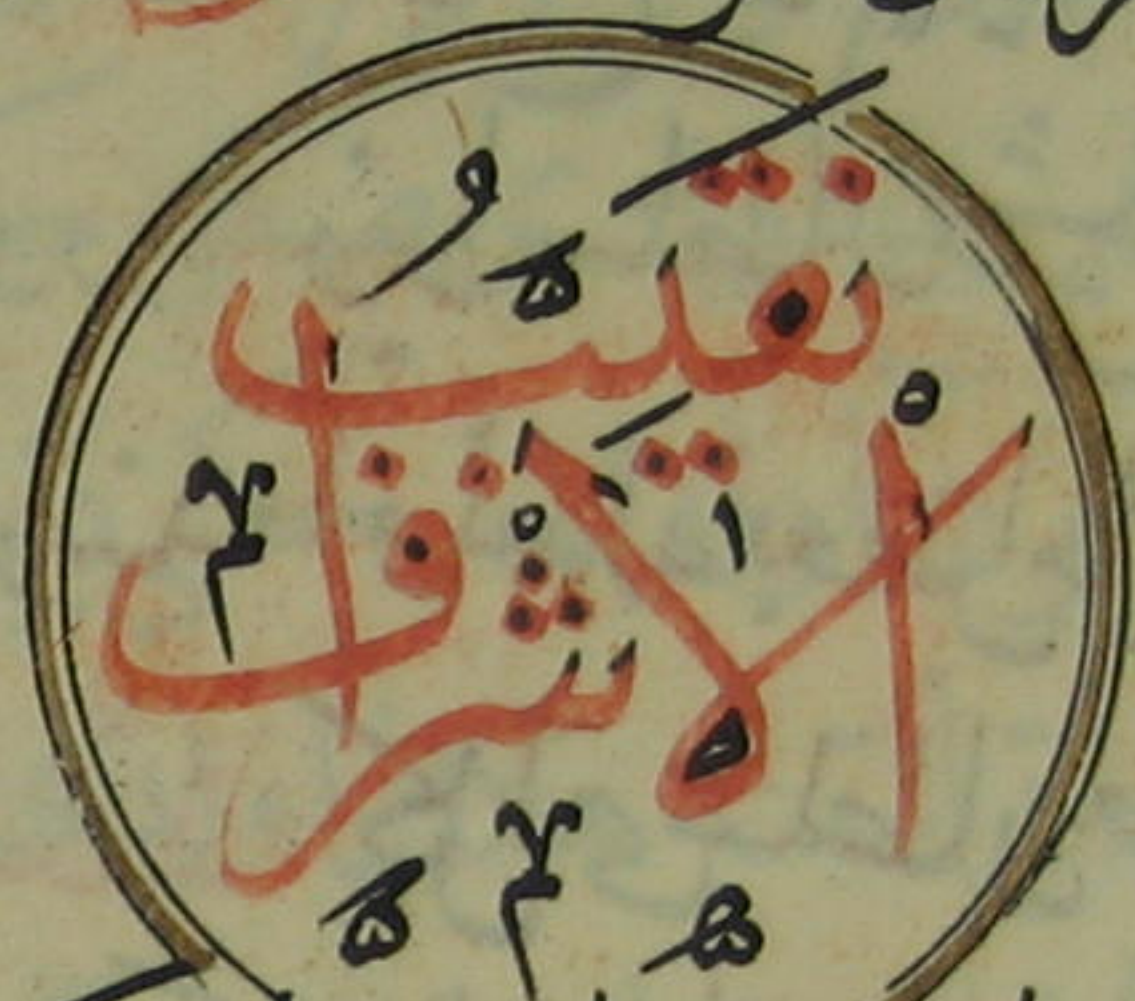 نقيب
الاشراف